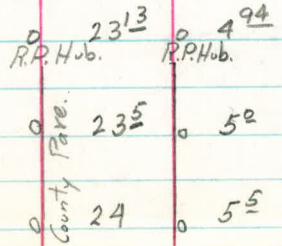 0 23 13 0 4 94
R.P. Hub. R.P. Hub.
0 23 5 0 5 0
County Pave.
0 24 0 5 5